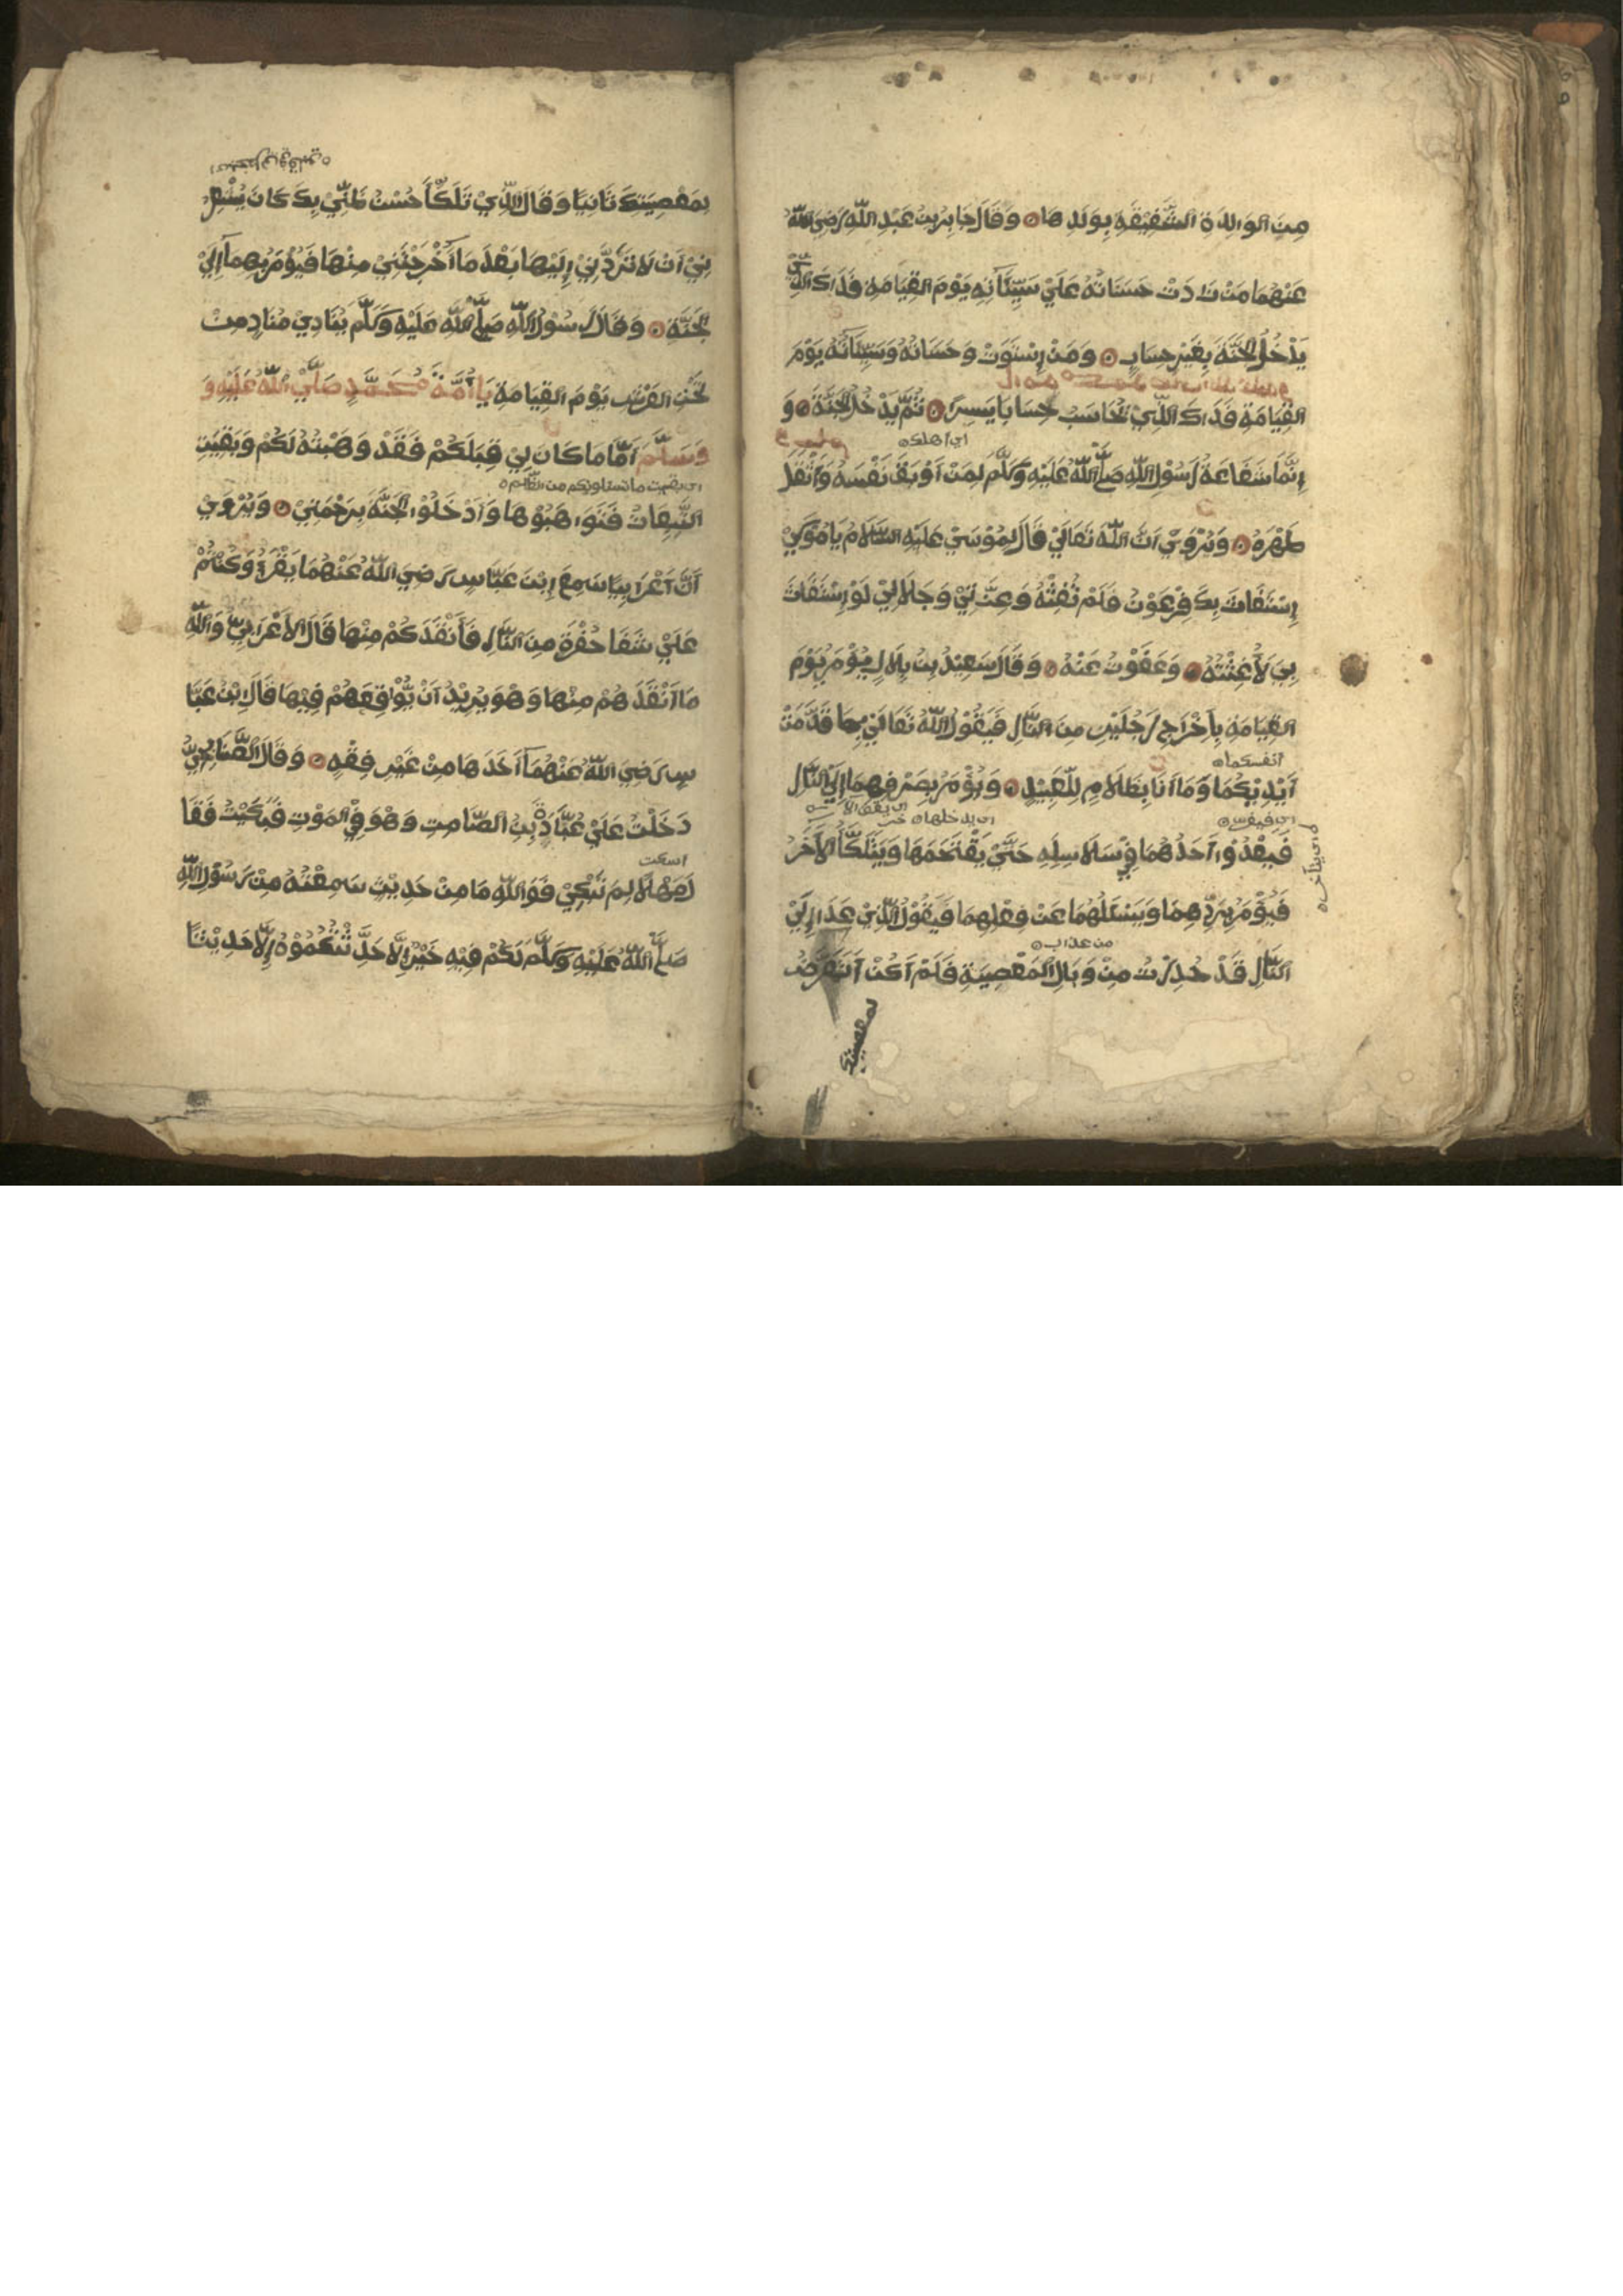 مِنَ الوَالِدَةِ الشَّفِيْقَةِ بِوَلَدِهَا وَقَالَ جَابِرُ بْنُ عَبْدِ اللّٰهِ رَضِيَ اللّٰهُ
عَنْهُمَا مَنْ زَادَتْ حَسَنَاتُهُ عَلَيْ سَيِّئَاتِهِ يَوْمَ القِيَامَةِ فَذَاكَ الَّذِيْ
يَدْخُلُ الجَنَّةَ بِغَيْرِ حِسَابٍ وَمَنْ اِسْتَوَتْ حَسَنَاتُهُ وَسَيِّئَاتُهُ يَوْمَ
القِيَامَةِ فَذَاكَ الَّذِيْ يُحَاسَبُ حِسَابًا يَسِيرًا ثُمَّ يَدْخُلُ الجَنَّةَ وَ
اي اهلك
اِنَّمَا شَفَاعَةُ رَسُوْلِ اللّٰهِ صَلَّي اللّٰهُ عَلَيْهِ وَسَلَّمَ لِمَنْ اَوْبَقَ نَفْسَهُ وَاَثْقَلَ
ظَهْرَهُ وَيُرْوَيْ اَنَّ اللّٰهَ تَعَالَيْ قَالَ لِمُوْسَيْ عَلَيْهِ السَّلَامُ يَا مُوْسَيْ
اِسْتَغَاثَ بِكَ فِرْعَوْنُ فَلَمْ تُغِثْهُ وَعِزَّتِيْ وَجَلَالِيْ لَوْ اِسْتَغَاثَ
بِيَ لَأَغَثْتُهُ وَعَفَوْتُ عَنْهُ وَقَالَ سَعِيْدُ بْنُ بِلَالٍ يُؤْمَرُ يَوْمَ
القِيَامَةِ بِاِخْرَاجِ رَجُلَيْنِ مِنَ النَّارِ فَيَقُوْلُ اللّٰهُ تَعَالَيْ بِمَا قَدَّمَتْ
انفسكما
اَيْدِيْكُمَا وَمَا اَنَا بِظَلَّامٍ لِلْعَبِيْدِ وَيُؤْمَرُ بِصَرْفِهِمَا اِلَيْ النَّارِ
اي يدخلها
فَيَعْدُوْا اَحَدُهُمَا فِيْ سَلَاسِلِهِ حَتَّيْ يَقْتَحَمَهَا وَيَتَلَكَّأُ الاٰخَرُ
اي يتأخر
فَيُؤْمَرُ بِرَدِّهِمَا وَيَسْئَلُهُمَا عَنْ فِعْلِهِمَا فَيَقُوْلُ الَّذِيْ عَدَا اِلَيْ
من عذاب
النَّارِ قَدْ حُذِرْتُ مِنْ وَبَالِ المَعْصِيَةِ فَلَمْ اَكُنْ اَتَعَرَّضُ
لمعصيتك
بِمَعْصِيَتِكَ ثَانِيًا وَقَالَ الَّذِيْ تَلَكَّأَ حُسْنُ ظَنِّيْ بِكَ كَانَ يُشْعِرُ
نِيْ اَنْ لَا تَرُدَّنِيْ اِلَيْهَا بَعْدَ مَا اَخْرَجْتَنِيْ مِنْهَا فَيُؤْمَرُ بِهِمَا اِلَيْ
الجَنَّةِ وَقَالَ رَسُوْلُ اللّٰهِ صَلَّي اللّٰهُ عَلَيْهِ وَسَلَّمَ يُنَادِيْ مُنَادٍ مِنْ
تَحْتِ العَرْشِ يَوْمَ القِيَامَةِ يَا اُمَّةَ مُحَمَّدٍ صَلَّي اللّٰهُ عَلَيْهِ وَ
وَسَلَّمَ اَمَّا مَا كَانَ لِيْ قِبَلَكُمْ فَقَدْ وَهَبْتُهُ لَكُمْ وَبَقِيَتِ
التَّبِعَاتُ فَتَوَاهَبُوْهَا وَادْخُلُوْا الجَنَّةَ بِرَحْمَتِيْ وَيُرْوَيْ
اَنَّ اَعْرَابِيًّا سَمِعَ اِبْنَ عَبَّاسٍ رَضِيَ اللّٰهُ عَنْهُمَا يَقْرَءُ وَكُنْتُمْ
عَلَيْ شَفَا حُفْرَةٍ مِنَ النَّارِ فَأَنْقَذَكُمْ مِنْهَا قَالَ الاَعْرَابِيُّ وَاللّٰهِ
مَا اَنْقَذَهُمْ مِنْهَا وَهُوَ يُرِيْدُ اَنْ يُّوْقِعَهُمْ فِيْهَا قَالَ ابْنُ عَبَّا
سٍ رَضِيَ اللّٰهُ عَنْهُمَا اَخَذَهَا مِنْ غَيْرِ فِقْهٍ وَقَالَ الصُّنَابِحِيُّ
دَخَلْتُ عَلَيْ عُبَادَةَ بْنِ الصَّامِتِ وَهُوَ فِيْ المَوْتِ فَبَكَيْتُ فَقَا
اسكت
لَ مَهْلًا لِمَ تَبْكِيْ فَوَاللّٰهِ مَا مِنْ حَدِيْثٍ سَمِعْتُهُ مِنْ رَسُوْلِ اللّٰهِ
صَلَّي اللّٰهُ عَلَيْهِ وَسَلَّمَ لَكُمْ فِيْهِ خَيْرٌ اِلَّا حَدَّثْتُكُمُوْهُ اِلَّا حَدِيْثًا